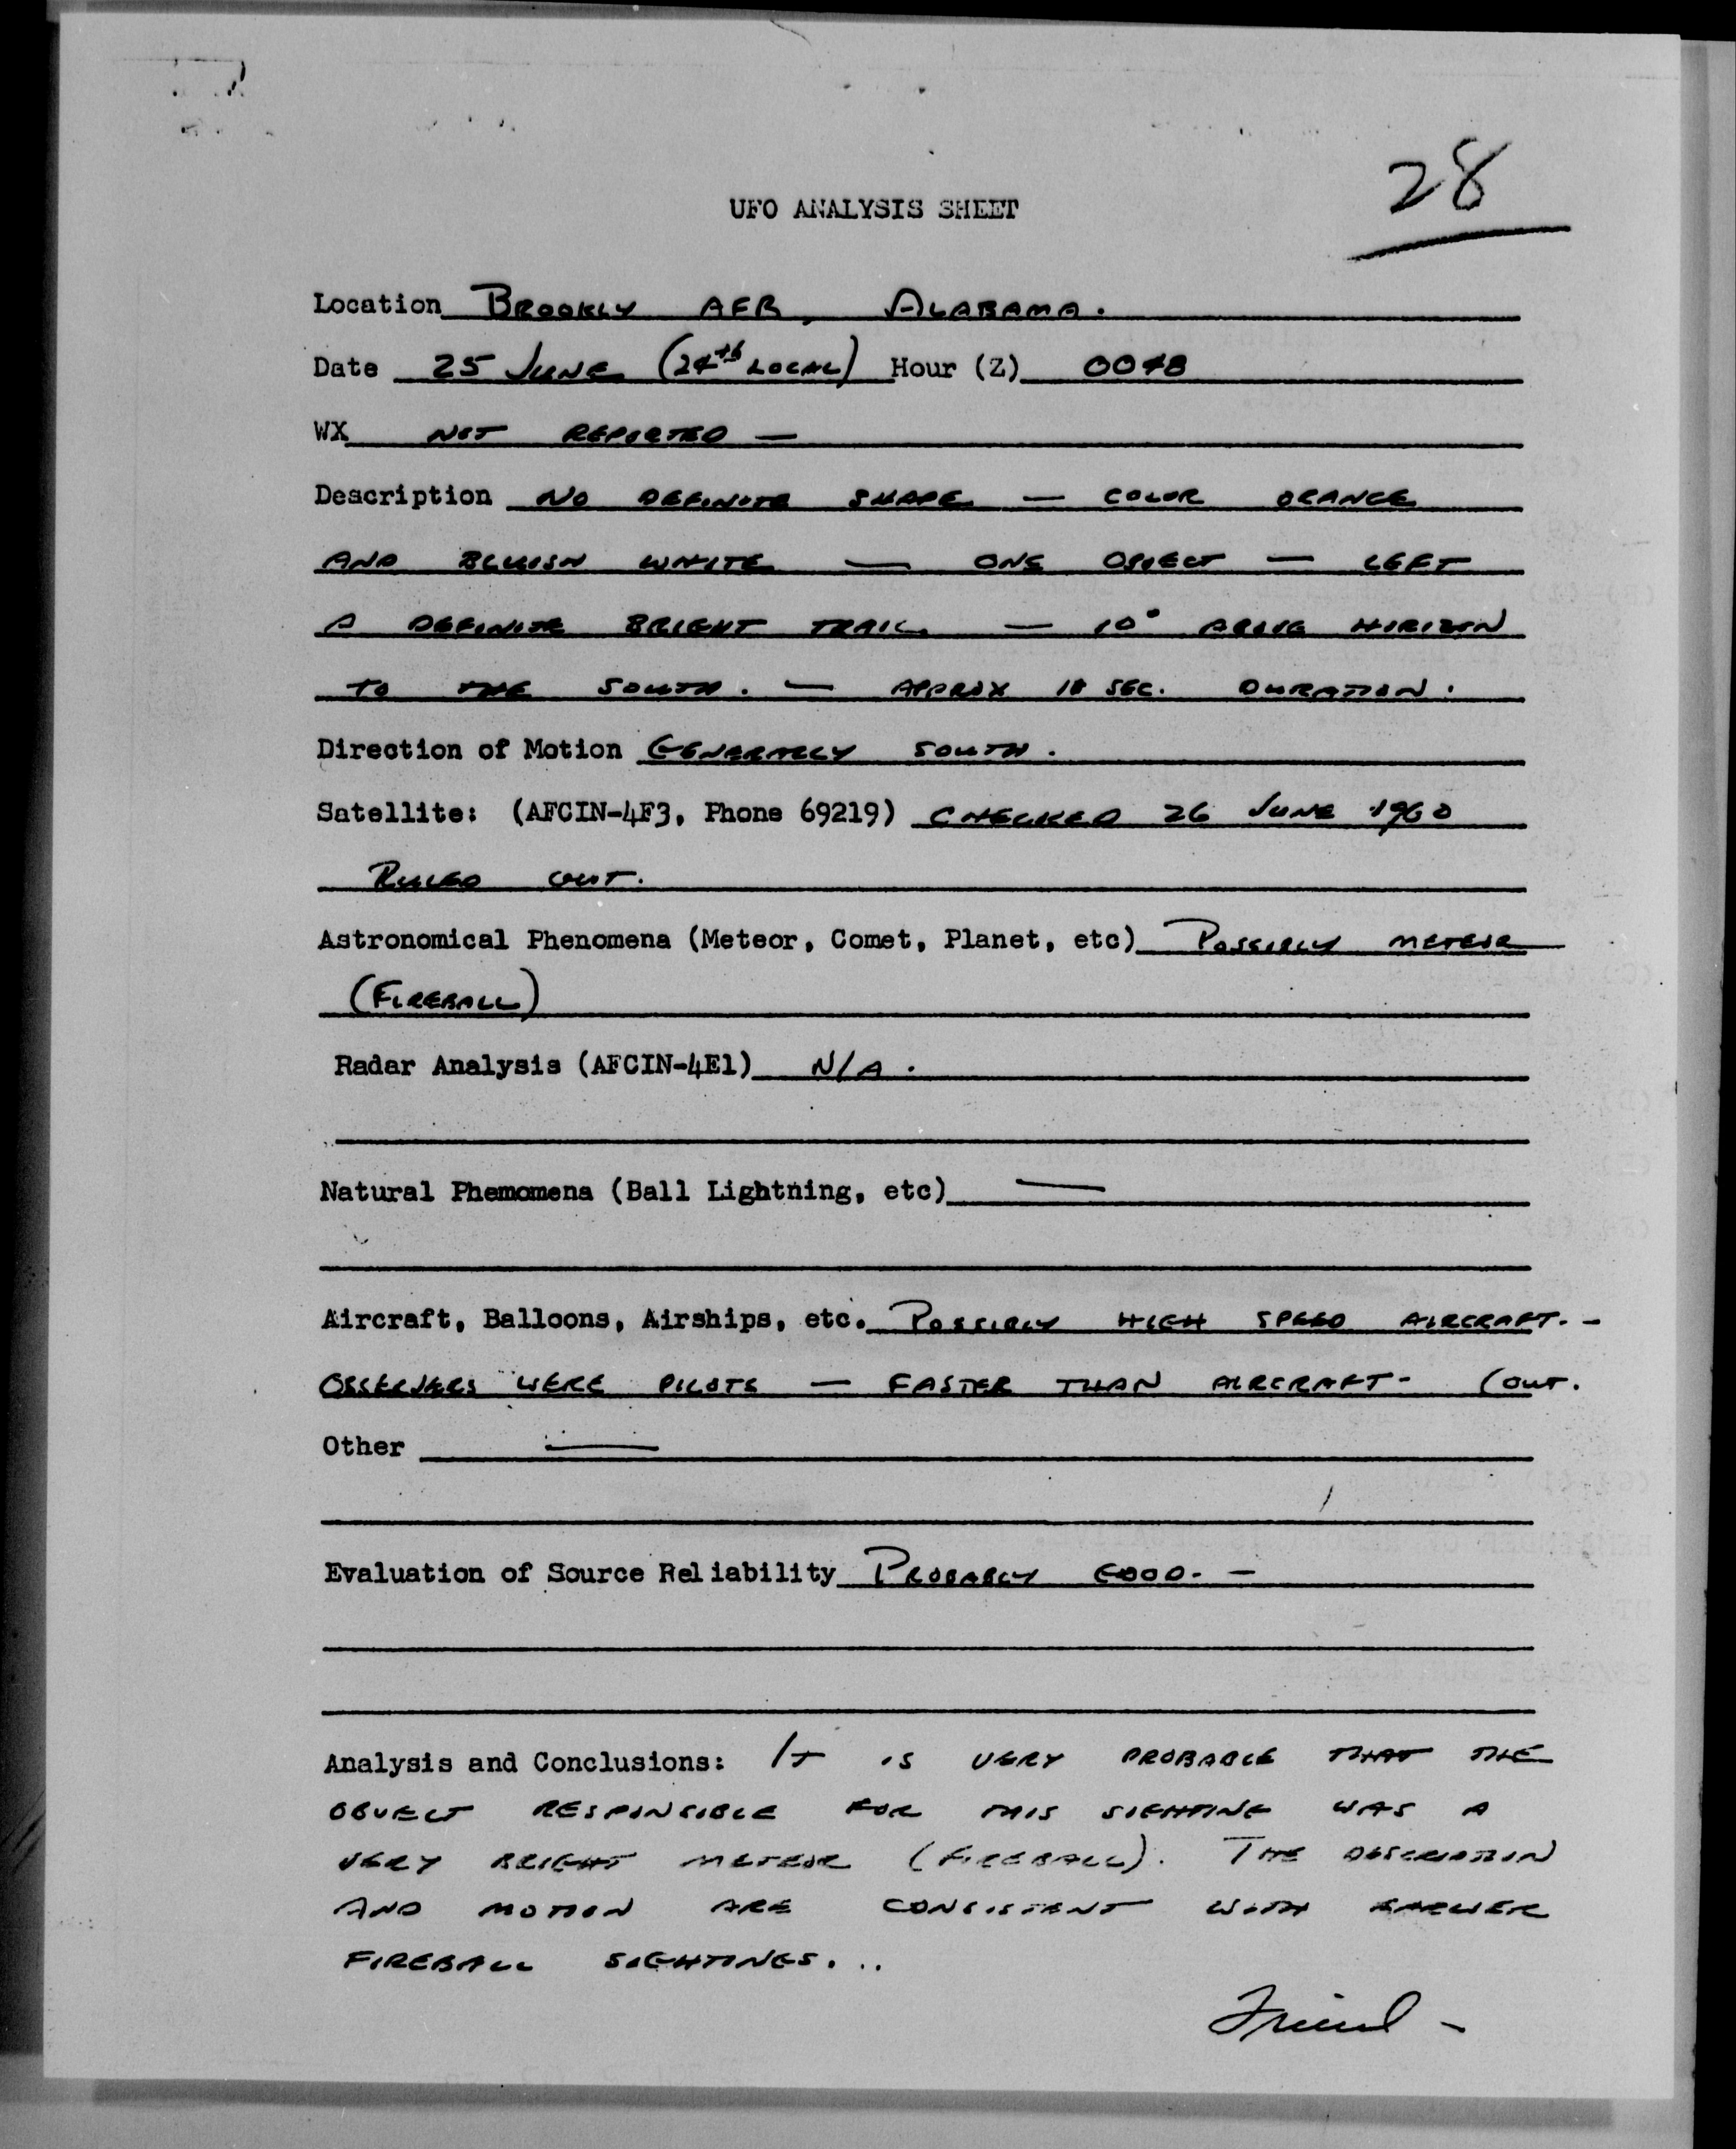 28
UFO ANALYSIS SHEET
Location BROOKLY AFB, ALABAMA.
Date 25 JUNE (24th LOCAL) Hour (Z) 0048
WX NOT REPORTED —
Description NO DEFINITE SHAPE — COLOR ORANGE
AND BLUISH WHITE — ONE OBJECT — LEFT
A DEFINITE BRIGHT TRAIL — 10° ABOVE HORIZON
TO THE SOUTH. — APPROX SEC. DURATION.
Direction of Motion GENERALLY SOUTH.
Satellite: (AFCIN-4F3, Phone 69219) CHECKED 26 JUNE 1960
RULED OUT.
Astronomical Phenomena (Meteor, Comet, Planet, etc) POSSIBLY METEOR
(FIREBALL)
Radar Analysis (AFCIN-4E1) N/A.
Natural Phemomena (Ball Lightning, etc) —
Aircraft, Balloons, Airships, etc. POSSIBLY HIGH SPEED AIRCRAFT. -
OBSERVERS WERE PILOTS — FASTER THAN AIRCRAFT- (OUT.
Other —
Evaluation of Source Reliability PROBABLY GOOD. —
Analysis and Conclusions: IT IS VERY PROBABLE THAT THE
OBJECT RESPONSIBLE FOR THIS SIGHTING WAS A
VERY BRIGHT METEOR (FIREBALL). THE DESCRIPTION
AND MOTION ARE CONSISTENT WITH EARLIER
FIREBALL SIGHTINGS...
Friend -